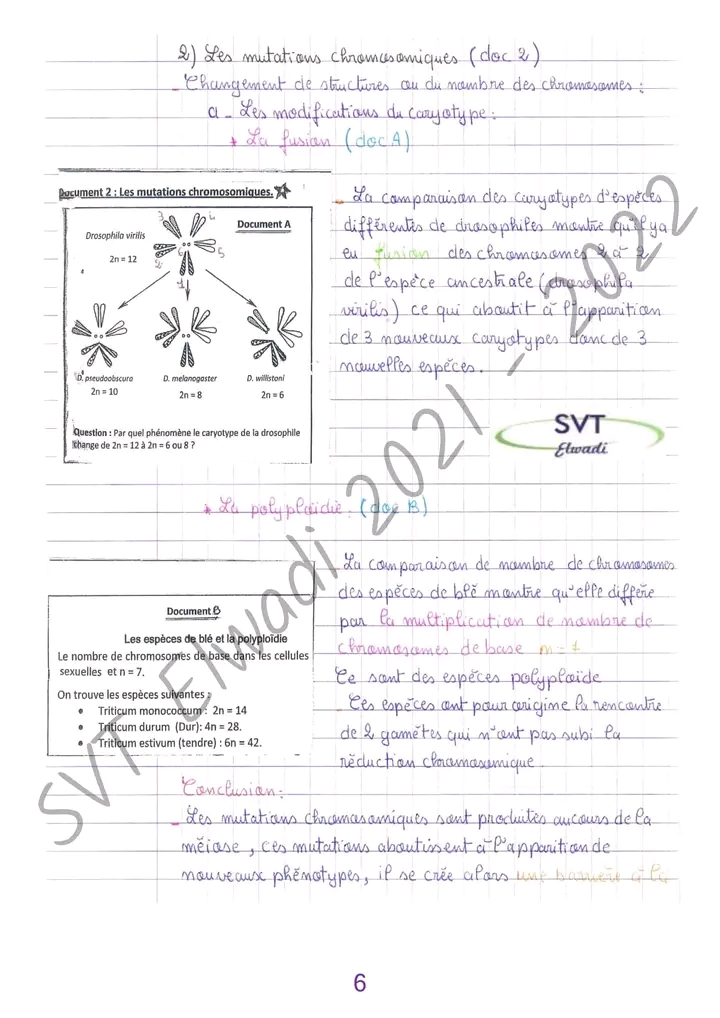 2) Les mutations chromosomiques (doc 2)
- Changement de structures ou du nombre des chromosomes :
a - Les modifications du caryotype :
* La fusion (doc A)
Document 2 : Les mutations chromosomiques.
Document A
3 4
Drosophila virilis
2n = 12
2 6 5
1
D. pseudoobscura
2n = 10
D. melanogaster
2n = 8
D. willistoni
2n = 6
Question : Par quel phénomène le caryotype de la drosophile
change de 2n = 12 à 2n = 6 ou 8 ?
- La comparaison des caryotypes d'espèces
différentes de drosophiles montre qu'il y a
eu fusion des chromosomes 2 à 2
de l'espèce ancestrale (drosophila
virilis) ce qui aboutit à l'apparition
de 3 nouveaux caryotypes donc de 3
nouvelles espèces.
SVT
Elwadi
* La polyploïdie : (doc B)
Document B
Les espèces de blé et la polyploïdie
Le nombre de chromosomes de base dans les cellules
sexuelles et n = 7.
On trouve les espèces suivantes :
• Triticum monococcum : 2n = 14
• Triticum durum (Dur): 4n = 28.
• Triticum estivum (tendre) : 6n = 42.
La comparaison de nombre de chromosomes
des espèces de blé montre qu'elle diffère
par la multiplication de nombre de
chromosomes de base n = 7
Ce sont des espèces polyploïde
Ces espèces ont pour origine la rencontre
de 2 gamètes qui n'ont pas subi la
réduction chromosomique.
Conclusion :
- Les mutations chromosomiques sont produites au cours de la
méiose, ces mutations aboutissent à l'apparition de
nouveaux phénotypes, il se crée alors une barrière à la
SVT Elwadi 2021 - 2022
6